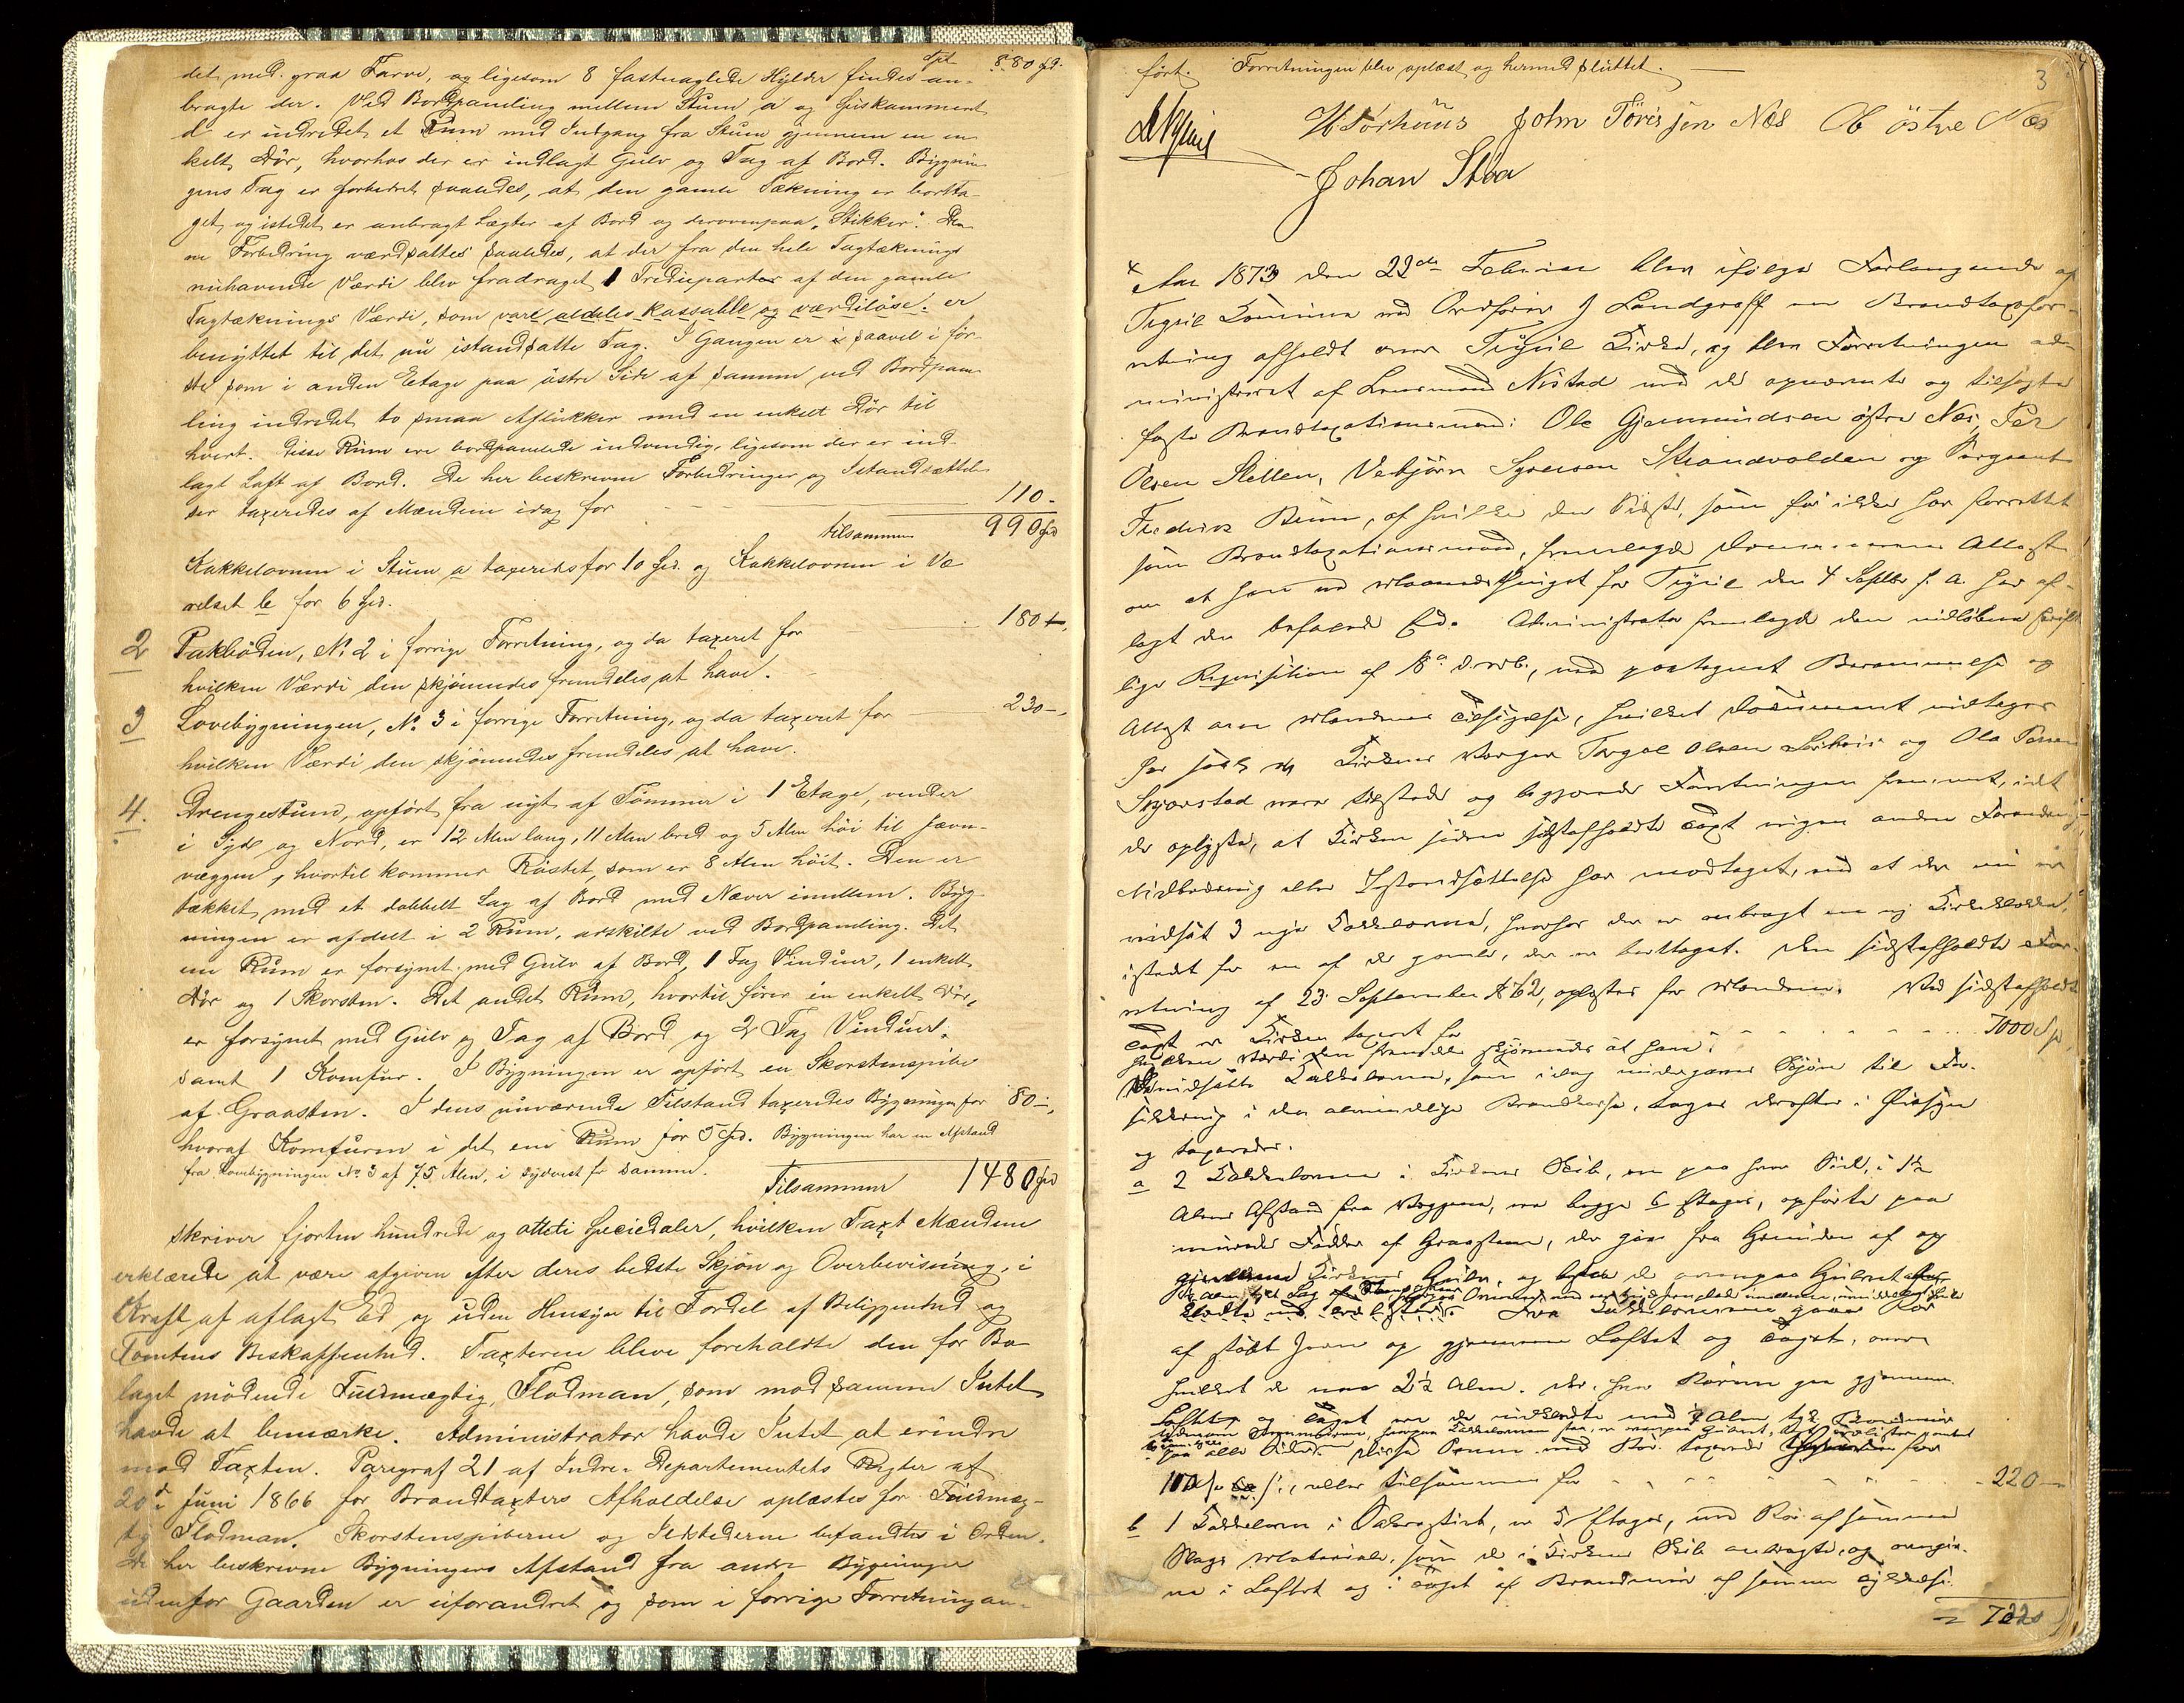 det med graa Farve, og ligesom 8 fastnaglede Hylder findes an- dpt 880 spd.
bragte der. Ved Bordpaneling mellem Stuen a og huskammeret
d er indredet et Rum med Indgang fra Stuen gjennem en en-
kelt Dör, hvorhos der er indlagt Gulv og Tag af Bord. Bygnin-
gens Tag er forbedret saaledes, at den gamle Tækning er bortta-
get, og istedet er anbragt Lægter af Bord og derovenpaa "Stikker". Den-
ne Forbedring værdsattes saaledes, at der fra den hele Tagtæknings
nuhavende Værdi blev fradraget 1 Trediepart af den gamle
Tagtæknings Værdi, som var aldeles kassable og værdiløse. er
benyttet til det nu istandsatte Tag. I Gangen er saavel i för-
ste som i anden Etage paa östre Side af samme ved Bordpane-
ling indredet to smaa Aflukker med en enkelt Dör til
hvert. Disse Rum ere bordpanelede indvendig, ligesom der er ind-
lagt Loft af Bord. De her beskrevne Forbedringer og Istandsættel-
ser taxeredes af Mændene idag for 110.
tilsammen 990 spd
Kakkelovnen i Stuen a taxeredes for 10 spd. og Kakkelovnen i Væ-
relset b for 6 spd.
2 Pakboden, No 2 i forrige Forretning, og da taxeret for 180 -,
hvilken Værdi den skjønnedes fremdeles at have.
3 Lovebygningen, No 3 i forrige Forretning, og da taxeret for 230 -,
hvilken Værdi den skjønnedes fremdeles at have.
4. Drengestuen, opført fra nyt af Tømmer i 1 Etage, vender
i Syd og Nord, er 12 Alen lang, 11 Alen bred og 5 Alen höi til Jævn-
væggen, hvortil kommer Röstet, som er 8 Alen höit. Den er
tækket med et dobbelt Lag af Bord med Næver imellem. Byg-
ningen er afdelt i 2 Rum, adskilte ved Bordpaneling. Det
ene Rum er forsynet med Gulv af Bord, 1 Fag Vinduer, 1 enkelt
Dör og 1 Skorsten. Det andet Rum, hvortil fører en enkelt Dör,
er forsynet med Gulv og Tag af Bord og 2 Fag Vinduer,
samt 1 Komfur. I Bygningen er opfört en Skorstenspibe
af Graasten. I dens nuværende Tilstand taxeredes Bygningen for 80 -,
hvoraf Komfuren i det ene Rum for 5 spd. Bygningen har en Afstand
fra Lovebygningen No 3 af 75 Alen, i sydvest for samme.
Tilsammen 1480 spd
skriver fjorten hundrede og otteti Speciedaler, hvilken Taxt Mændene
erklærede at være afgiven efter deres bedste Skjøn og Overbevisning, i
Kraft af aflagt Ed og uden Hensyn til Fordel af Beliggenhed og
Tomtens Beskaffenhed. Taxterne bleve foreholdte den for Bo-
laget mødende Fuldmægtig, Flodman, som mod samme Intet
havde at bemærke. Administrator havde Intet at erindre
mod Taxten. Paragraf 21 af Indre-Departementets Regler af
20de Juni 1866 for Brandtaxters Afholdelse oplæstes for Fuldmæg-
tig Flodman. Skorstenspiberne og Ildstederne befandtes i Orden.
De her beskrevne Bygningers Afstand fra andre Bygninger
udenfor Gaarden er uforandret og som i forrige Forretning an-
3
fört. Forretningen blev oplæst og hermed sluttet.
H Sörhuus John Törisjen Næs Ob östre Næs
Johan Støa
Aar 1873 den 22de Februar blev ifølge Forlangende af
Trysil Kommune ved Ordfører J Landgraff en Brandtaxtfor-
retning afholdt over Trysil Kirke, og blev Forretningen ad-
ministreret af Lensmand Nestad med de opnævnte og tilsagte
faste Brandtaxationsmænd: Ole Gjermundsen östre Næs, Per
Olsen Skellen, Vebjörn Syversen Strandvolden og Sergeant
Frederik Bruun, af hvilke den Sidste, som för ikke har forrettet
som Brandtaxationsmand, fremlagde Attest
om at have ved Maanedsthinget for Trysil den 4 Septbr f. A. har af-
lagt den befalede Ed. Administrator fremlagde den indløbne skrift-
lige Requisition af 18de d. M., med paategnet Berammelse og
Attest om Mændenes Tilsigelse, hvilket Document indtages
her Kirkens Værger Torgal Olsen Sörhuus og Ola Persen
Skjærstad vare tilstede og begjærede Forretningen fremmet, idet
de oplyste, at Kirken siden sidstafholdte Taxt ingen anden Forandring,
Udbedring eller Istandsættelse har modtaget, end at der nu er
indsat 3 nye Kakkelovne, hvorhos der er anbragt en ny Kirkeklokke,
istedet for en af de gamle, der er borttaget. Den sidstafholdte For-
retning af 23 September 1862, oplæstes for Mændene. Ved sidstafholdte
Taxt er Kirken taxeret for 7000 Spd,
hvilken Værdi den fremdeles skjønnedes at have.
De indsatte Kakkelovne, som idag undergives Skjøn til For-
sikkring i den almindelige Brandkasse, toges derefter i Øiesyn
og taxeredes.
a 2 Kakkelovne i Kirkens Skib, en paa hver Side, i 1½
Alens Afstand fra Væggene, ere begge 6 Etager, opførte paa
murede Fødder af Graasten, der gaar fra Grunden af op
gjennem Kirkens Gulv, og
Fra Kakkelovnene gaar Rør
af støbt Jern op gjennem Loftet og Taget, over
hvilket de naa 2½ Alen. Der, hvor Rørene gaa gjennem
Loftet og Taget ere de indklædte med Alen tyk Brandmur
paa alle Sider. Disse Ovne med Rør taxeredes for
110 eller tilsammen for 220 -
b 1 Kakkelovn i Sakrastiet, er 5 Etager, med Rør af samme
Slags Materiale, som de i Kirkens Skib anbragte, og omgiv-
ne i Loftet og i Taget af Brandmur af samme Tykkelse.
7220